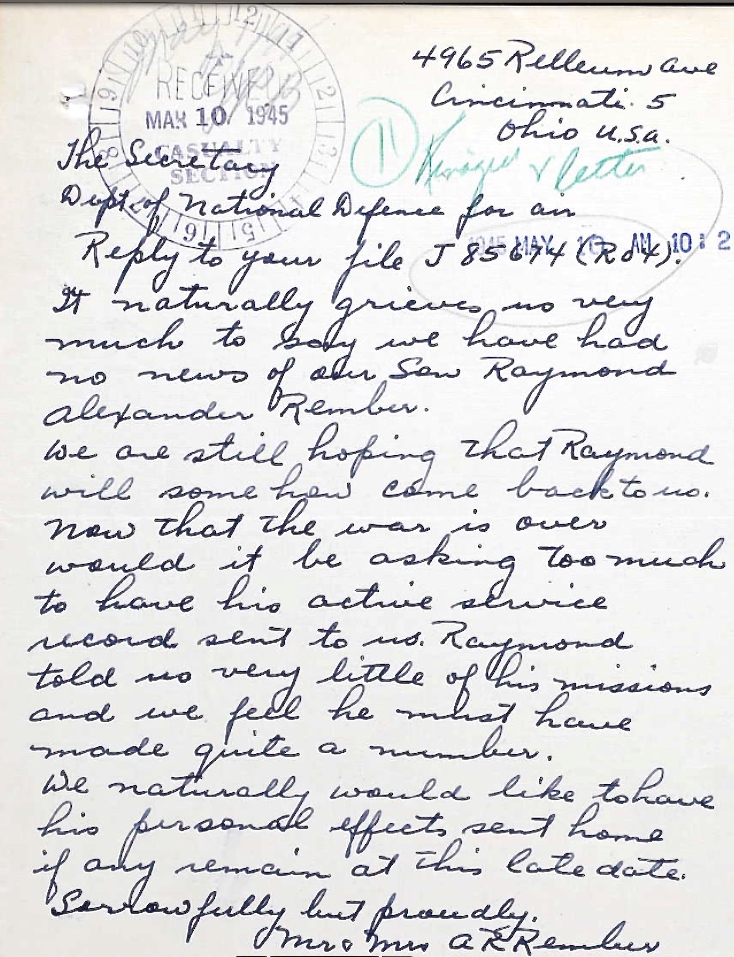 4965 Relleum Ave
Cincinnati. 5
Ohio U.S.A.
RECEIVED
MAR 10 1945
CASUALTY
SECTION
11
& letter
The Secretary
Dept. of National Defence for air
1945 MAY 10 AM 10:12
Reply to your file J 85674 (R04).
It naturally grieves us very
much to say we have had
no news of our Son Raymond
Alexander Rember.
We are still hoping that Raymond
will some how come back to us.
Now that the war is over
would it be asking too much
to have his active service
record sent to us. Raymond
told us very little of his missions
and we feel he must have
made quite a number.
We naturally would like to have
his personal effects sent home
if any remain at this late date.
Sorrowfully but proudly.
Mr & Mrs A R Rember